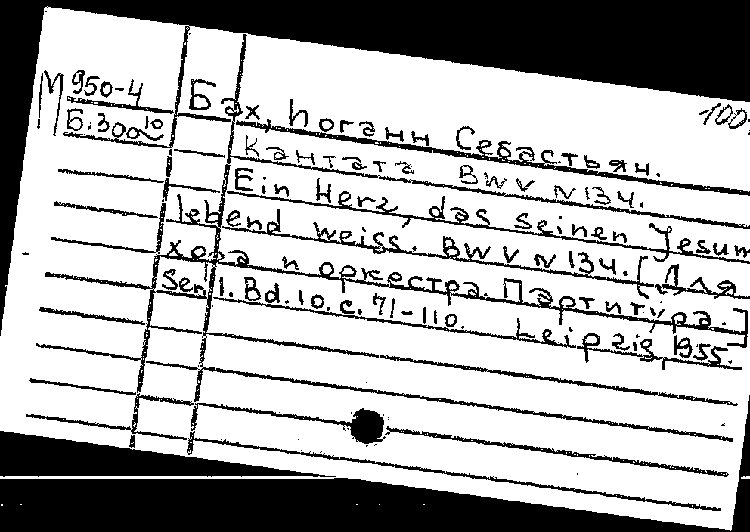 М 950-4
Б.300 10
100
Бах, Иоганн Себастьян.
Кантата BWV N 134.
Ein Herz, das seinen Jesum
lebend weiss. BWV N 134. [Для
хора и оркестра. Партитура.]
Ser. 1. Bd. 10. с. 71-110. Leipzig, 1955.